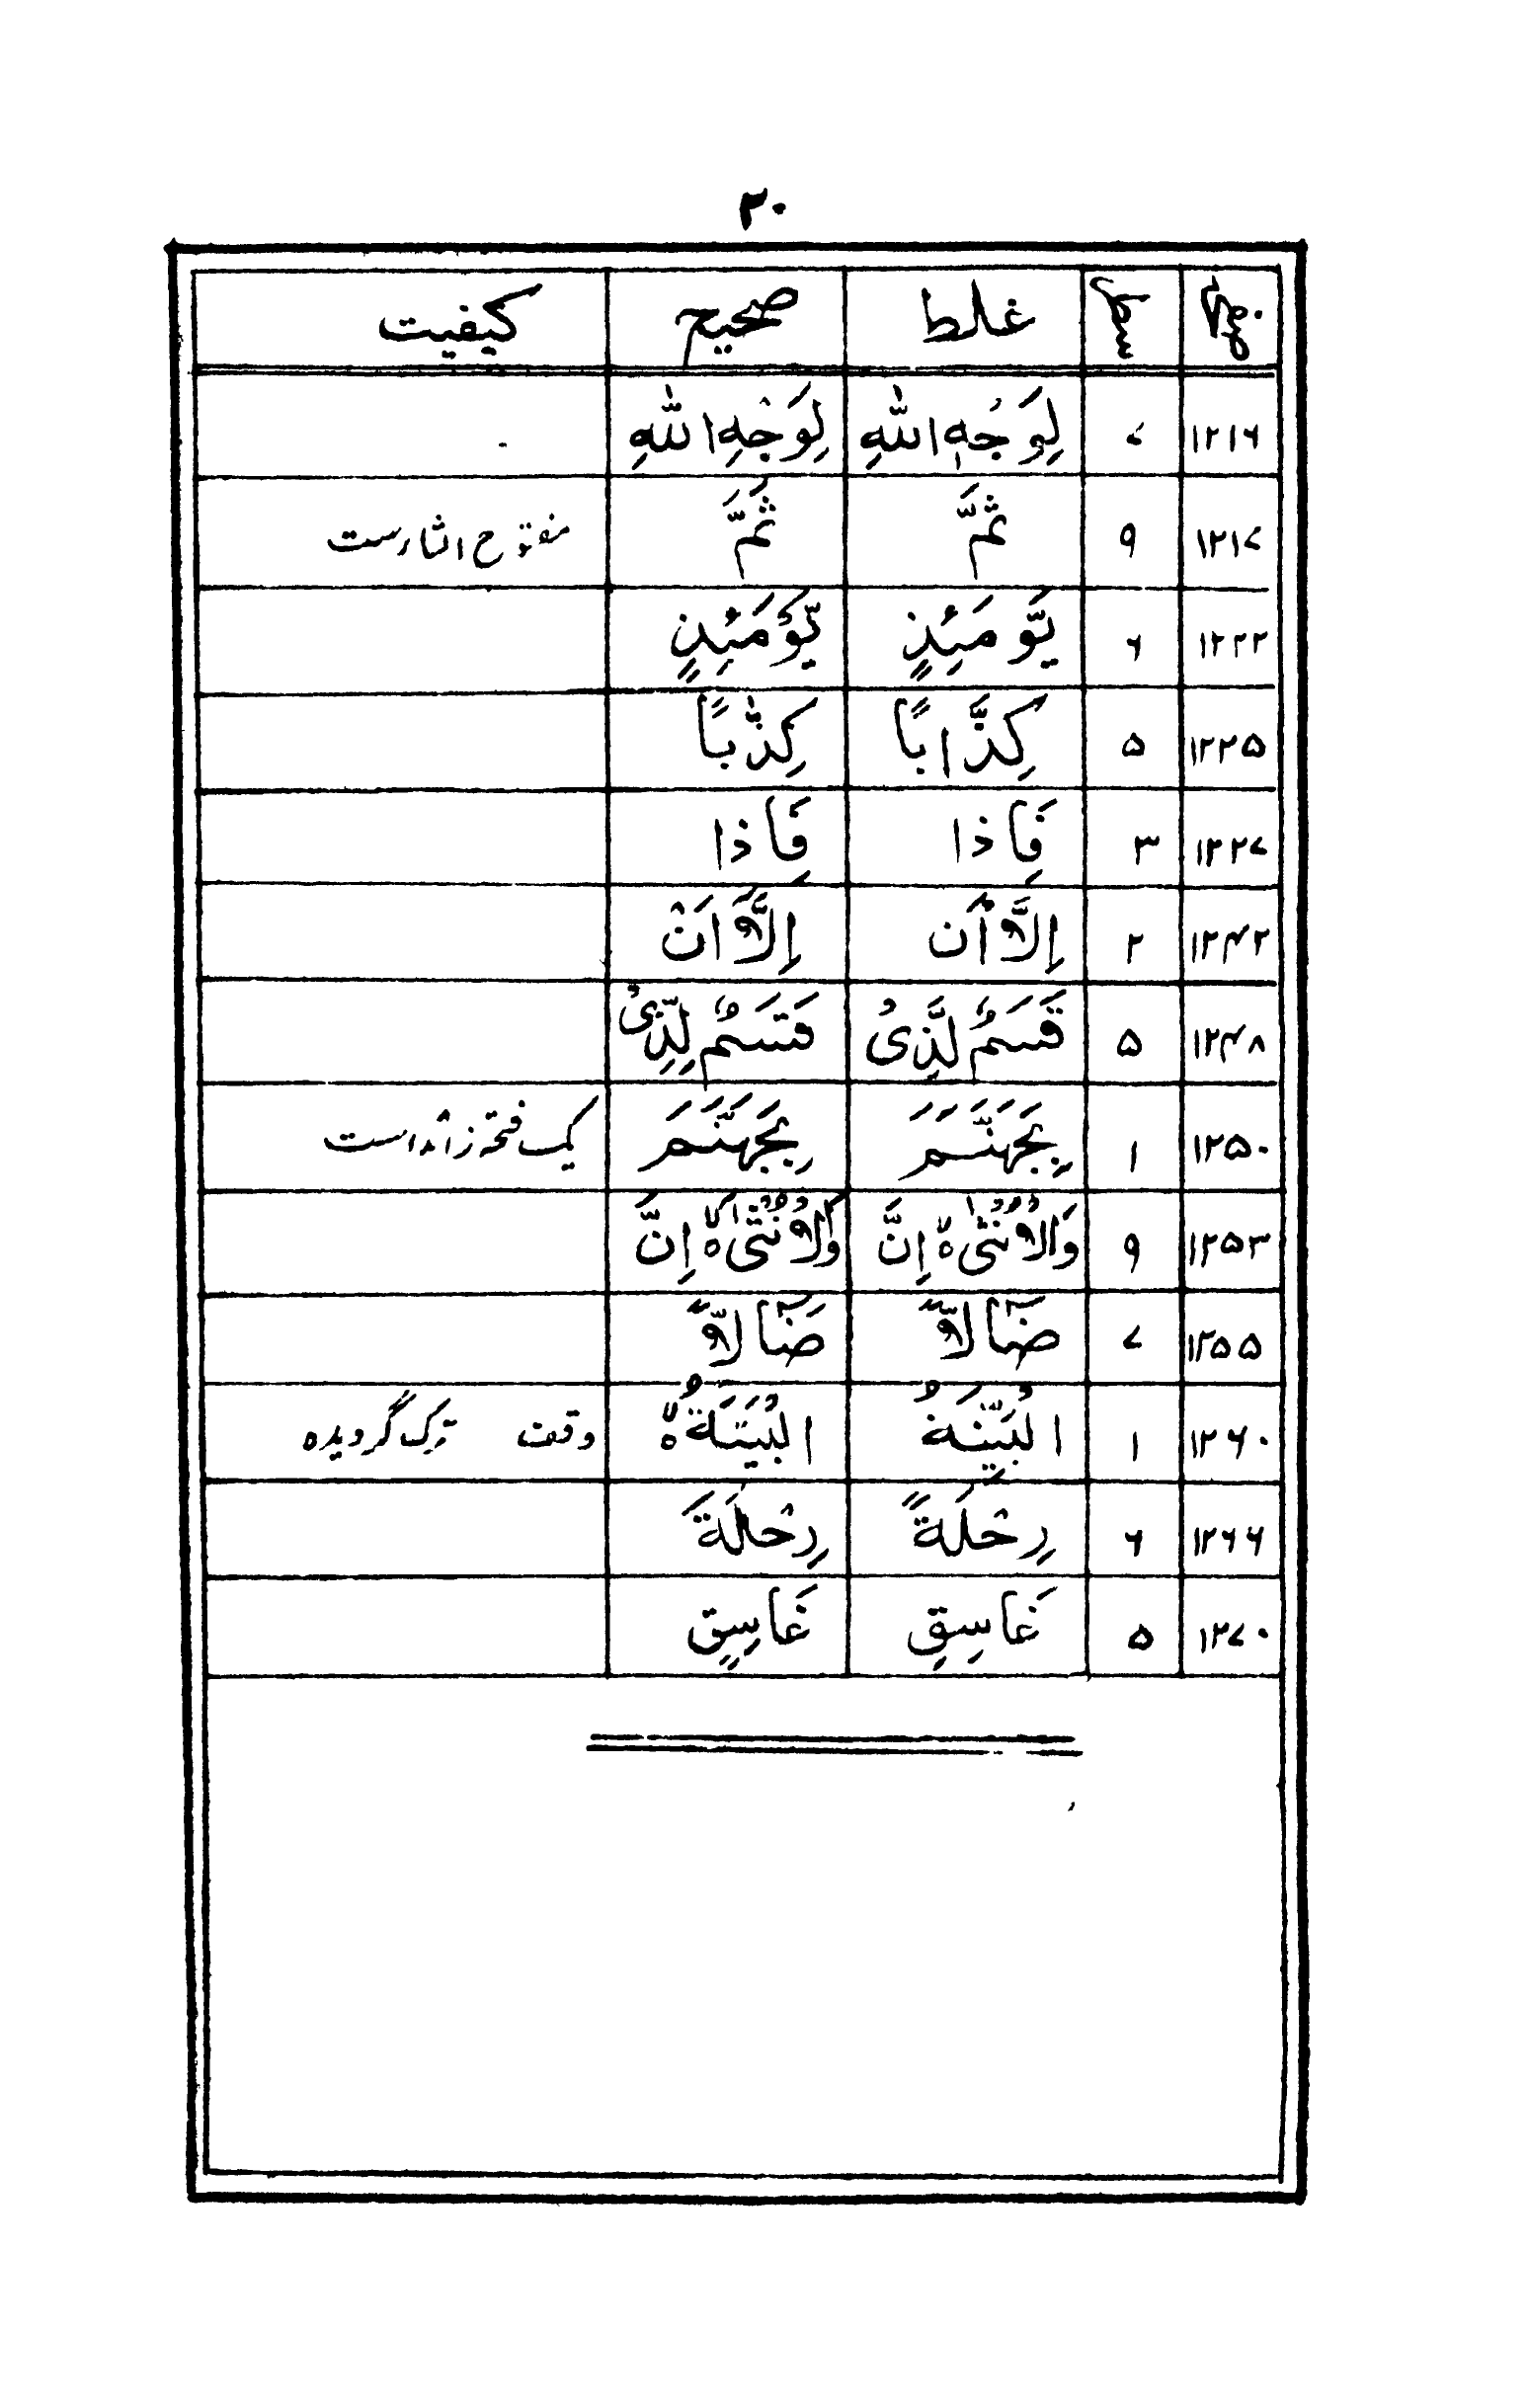 ۲۰
صفحہ سطر غلط صحیح کیفیت
۱۲۱۶ ۷ لِوَجْهِ اللّٰهِ لِوَجْهِ اللّٰهِ
۱۲۱۷ ۹ ثمَّ ثَمَّ مفتوح الثاءست
۱۲۲۲ ۶ يَّوमَئِذٍ يَّوْمَئِذٍ
۱۲۲۵ ۵ كِذَّابًا كِذّٰبًا
۱۲۲۷ ۳ فَاِذا فَاِذا
۱۲۴۲ ۲ اِلَّآ اَن اِلَّآ اَنْ
۱۲۴۸ ۵ قَسَمٌ لَّذِىْ قَسَمٌ لِّذِىْ
۱۲۵۰ ۱ بِجَهَنَّمَ بِجَهَنَّمَ یک فتحہ زائد است
۱۲۵۳ ۹ وَالْاُنْثٰىۙ اِنَّ وَالْاُنْثٰىۤ ۙ اِنَّ
۱۲۵۵ ۷ ضَآلًّا ضَآلًّا
۱۲۶۰ ۱ الْبَيِّنَةُ الْبَيِّنَةُ ۙ وقف ترک گردیدہ
۱۲۶۶ ۶ رِحْلَةً رِحْلَةَ
۱۲۷۰ ۵ غَاسِقِ غَاسِقٍ